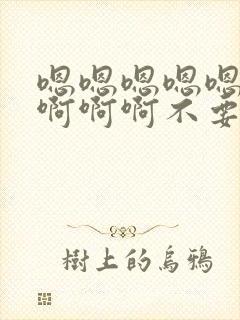 嗯嗯嗯嗯嗯
啊啊啊不要
樹上的烏鴉